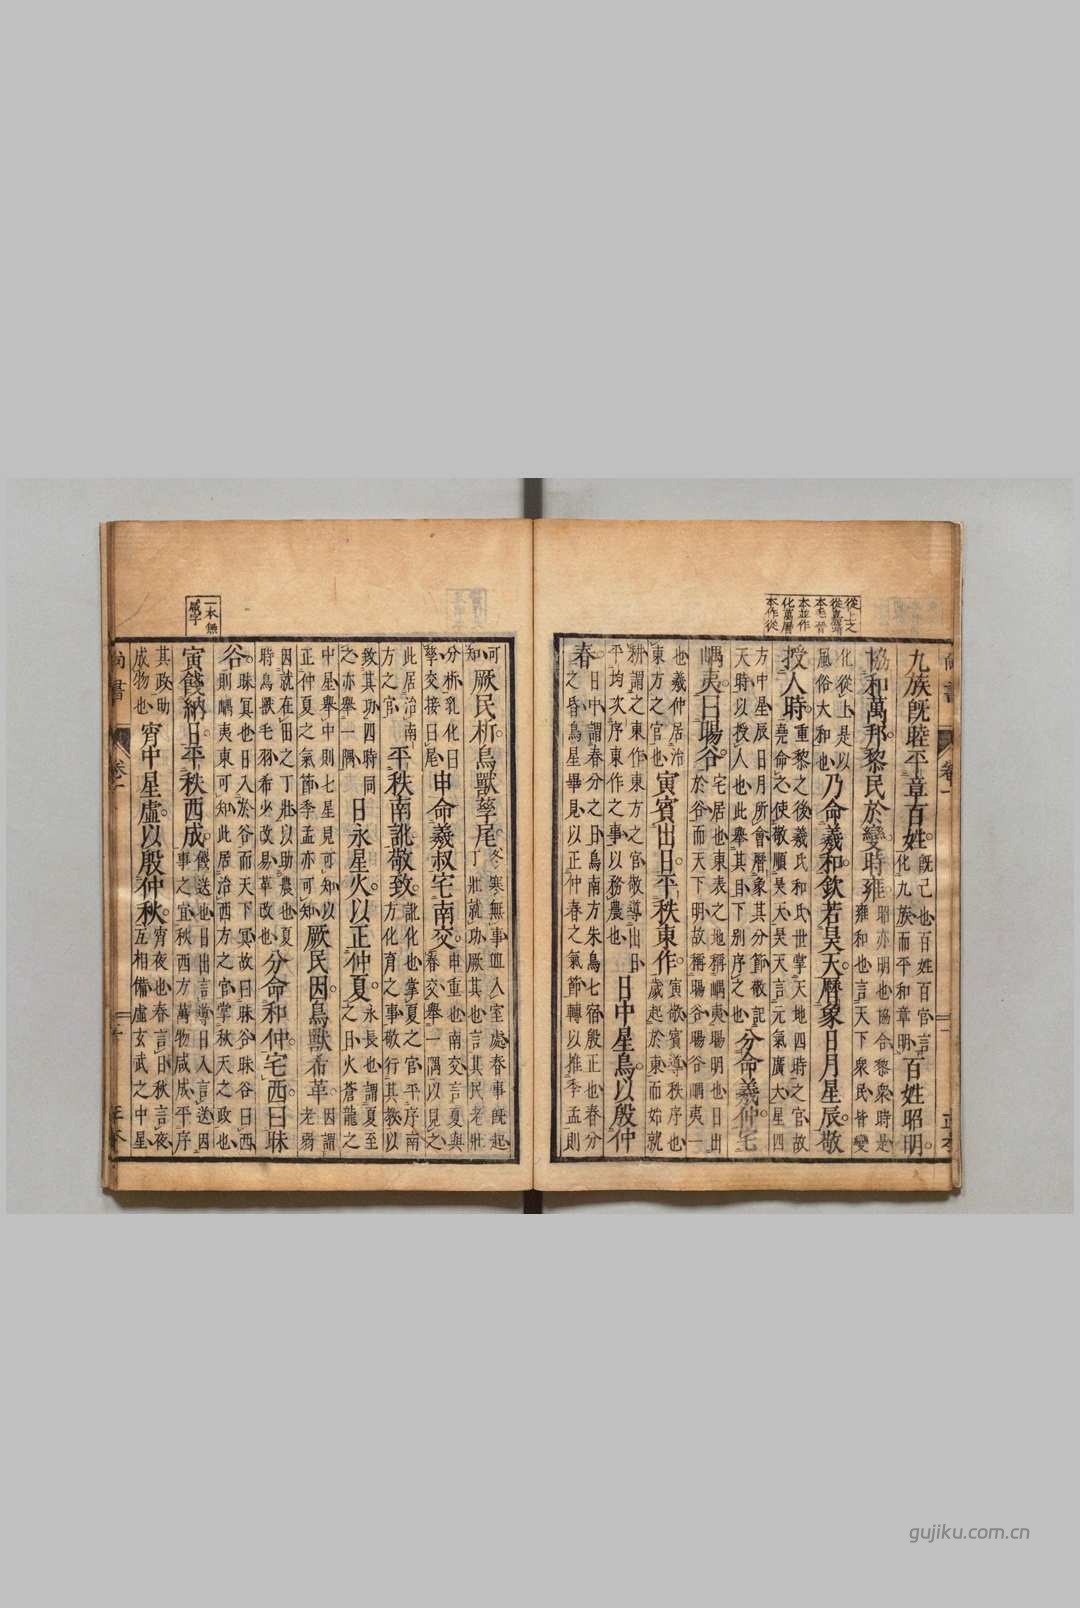 從上之
從嘉靖
本毛晉
本並作
化萬曆
本作從
九族既睦平章百姓
既已也百姓百官言
化九族而平和章明
百姓昭明
協和萬邦黎民於變時雍
昭亦明也協合黎衆時是
雍和也言天下衆民皆變
化從上是以
風俗大和也
乃命羲和欽若昊天曆象日月星辰敬
授人時
重黎之後羲氏和氏世掌天地四時之官故
堯命之使敬順昊天昊天言元氣廣大星四
方中星辰日月所會曆象其分節敬記
天時以授人也此舉其目下別序之也
分命羲仲宅
嵎夷曰暘谷
宅居也東表之地稱嵎夷暘明也日出
於谷而天下明故稱暘谷暘谷嵎夷一
也羲仲居治
東方之官也
寅賓出日平秩東作
寅敬賓導秩序也
歲起於東而始就
耕謂之東作東方之官敬導出日
平均次序東作之事以務農也
日中星鳥以殷仲
春
日中謂春分之日鳥南方朱鳥七宿殷正也春分
之昏鳥星畢見以正仲春之氣節轉以推季孟則
一本無
字
可
知
厥民析鳥獸孳尾
冬寒無事並入室處春事既起
丁壯就功厥其也言其民老壯
分析乳化曰
孳交接曰尾
申命羲叔宅南交
申重也南交言夏與
春交舉一隅以見之
此居治南
方之官
平秩南訛敬致
訛化也掌夏之官平序南
方化育之事敬行其教以
致其功四時同
之亦舉一隅
日永星火以正仲夏
永長也謂夏至
之日火蒼龍之
中星舉中則七星見可知以
正仲夏之氣節季孟亦可知
厥民因鳥獸希革
因謂
老弱
因就在田之丁壯以助農也夏
時鳥獸毛羽希少改易革改也
分命和仲宅西曰昧
谷
昧冥也日入於谷而天下冥故曰昧谷昧谷曰西
則嵎夷東可知此居治西方之官掌秋天之政也
寅餞納日平秩西成
餞送也日出言導日入言送因
事之宜秋西方萬物咸成平序
其政助
成物也
宵中星虛以殷仲秋
宵夜也春言日秋言夜
互相備虛玄武之中星
尚書
卷一
gujiku.com.cn